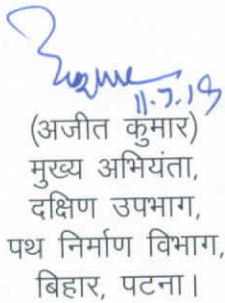 11.7.19
(अजीत कुमार)
मुख्य अभियंता,
दक्षिण उपभाग,
पथ निर्माण विभाग,
बिहार, पटना।